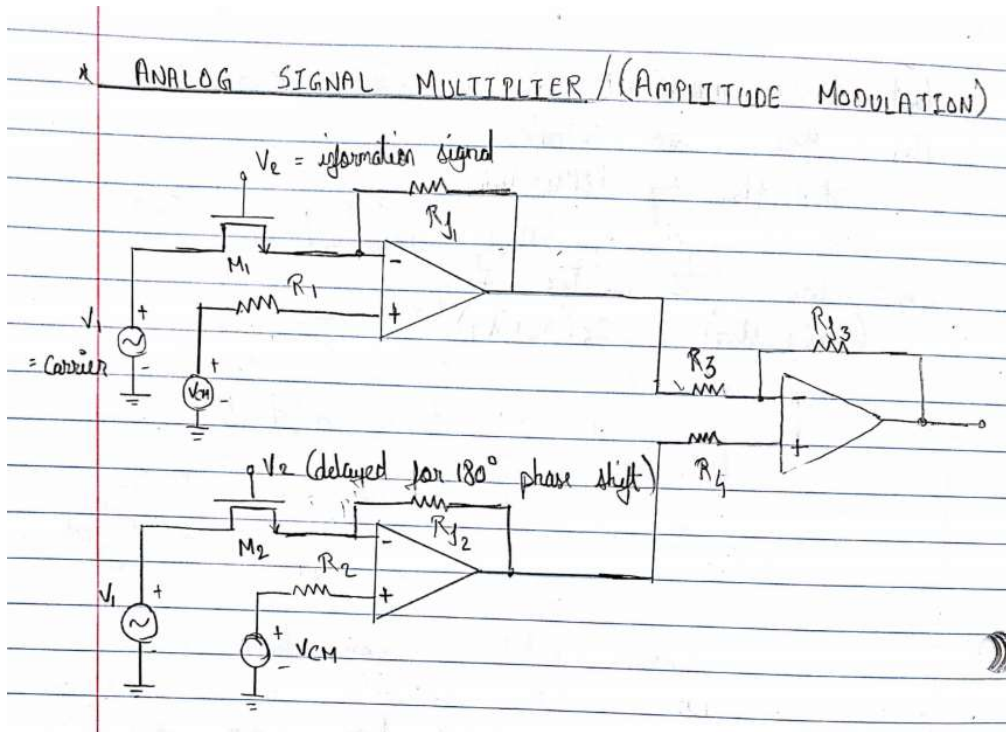 * ANALOG SIGNAL MULTIPLIER / (AMPLITUDE MODULATION)
V2 = iformation signal
Rf1
M1
R1
V1 + -
= Carrier
VCM + -
- +
R3
Rf3
- +
R4
V2 (delayed for 180° phase shift)
Rf2
M2
R2
V1 + -
+ VCM -
- +